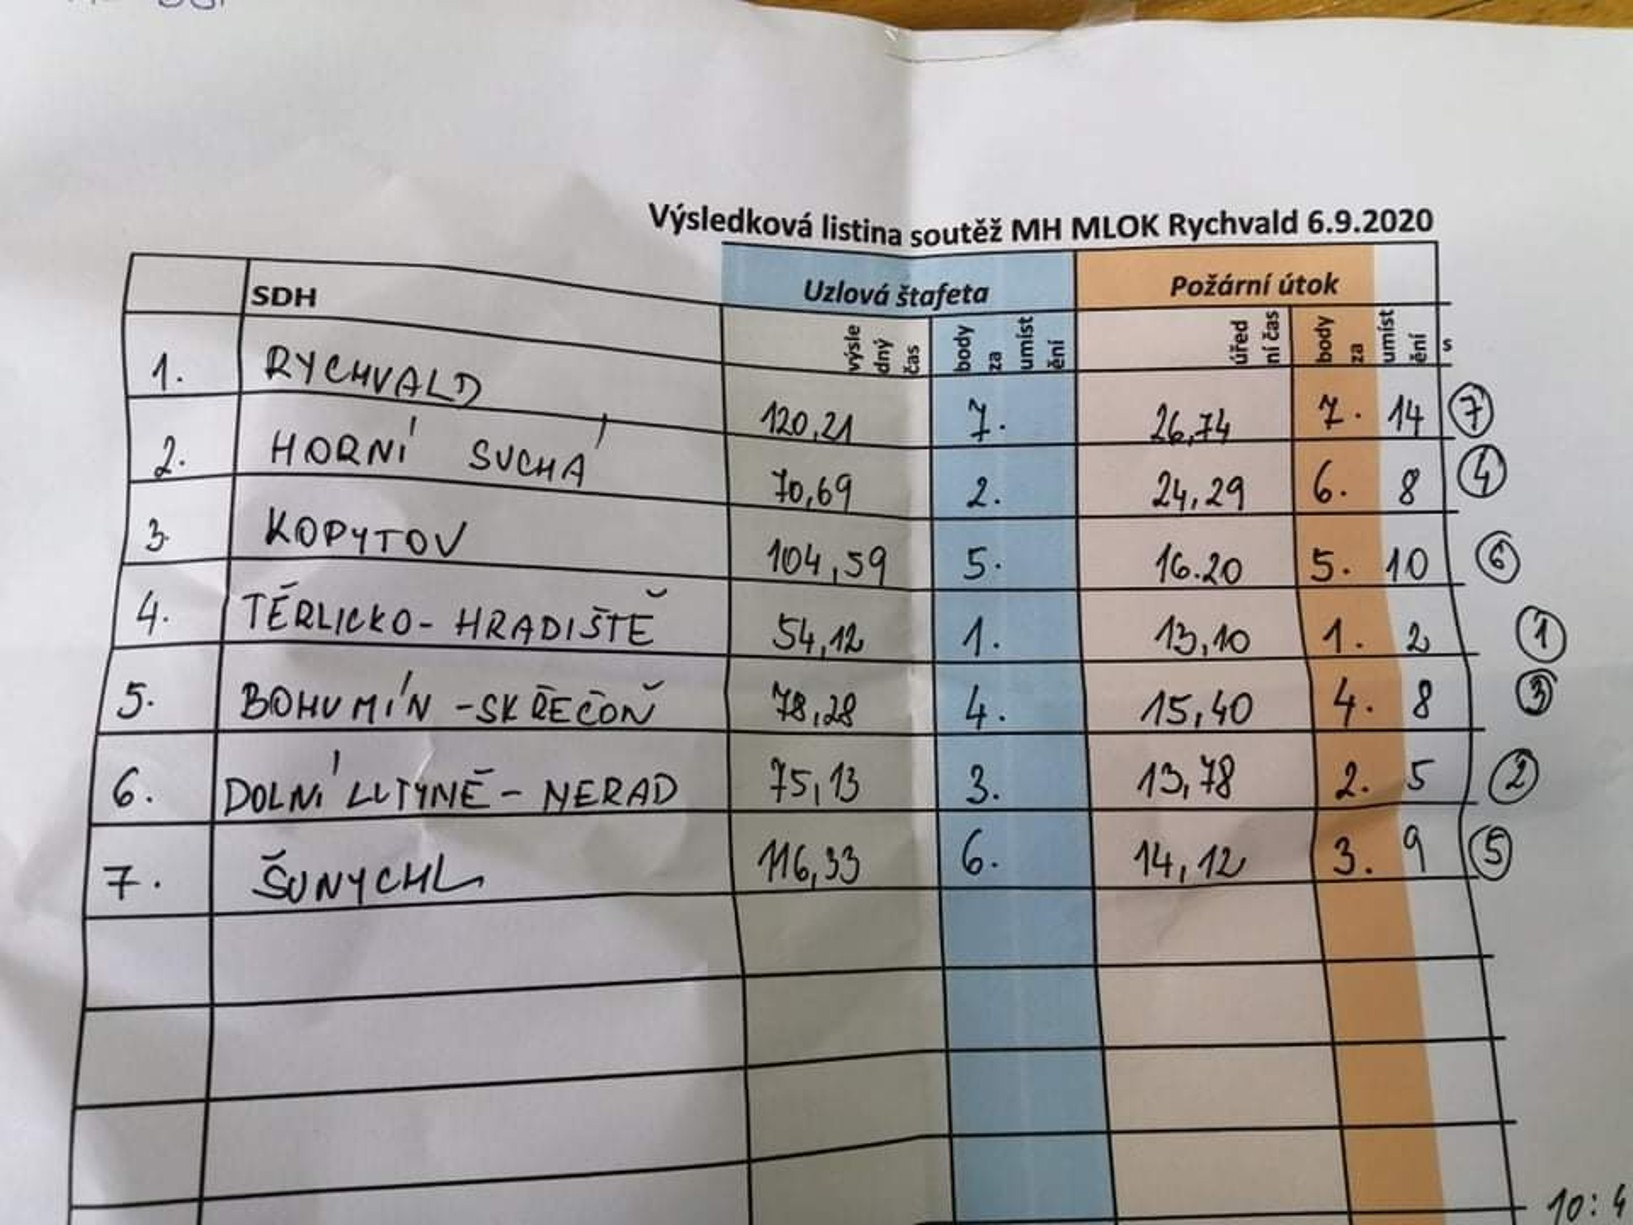 Výsledková listina soutěž MH MLOK Rychvald 6.9.2020
SDH Uzlová štafeta Požární útok
výsle dný čas body za umíst ění úřed ní čas body za umíst ění s
1. RYCHVALD 120,21 7. 26,74 7. 14 7
2. HORNÍ SUCHÁ 70,69 2. 24,29 6. 8 4
3. KOPYTOV 104,59 5. 16.20 5. 10 6
4. TĚRLICKO - HRADIŠTĚ 54,12 1. 13,10 1. 2 1
5. BOHUMÍN - SKŘEČOŇ 78,28 4. 15,40 4. 8 3
6. DOLNÍ LUTYNĚ - NERAD 75,13 3. 13,78 2. 5 2
7. ŠUNYCHL 116,33 6. 14,12 3. 9 5